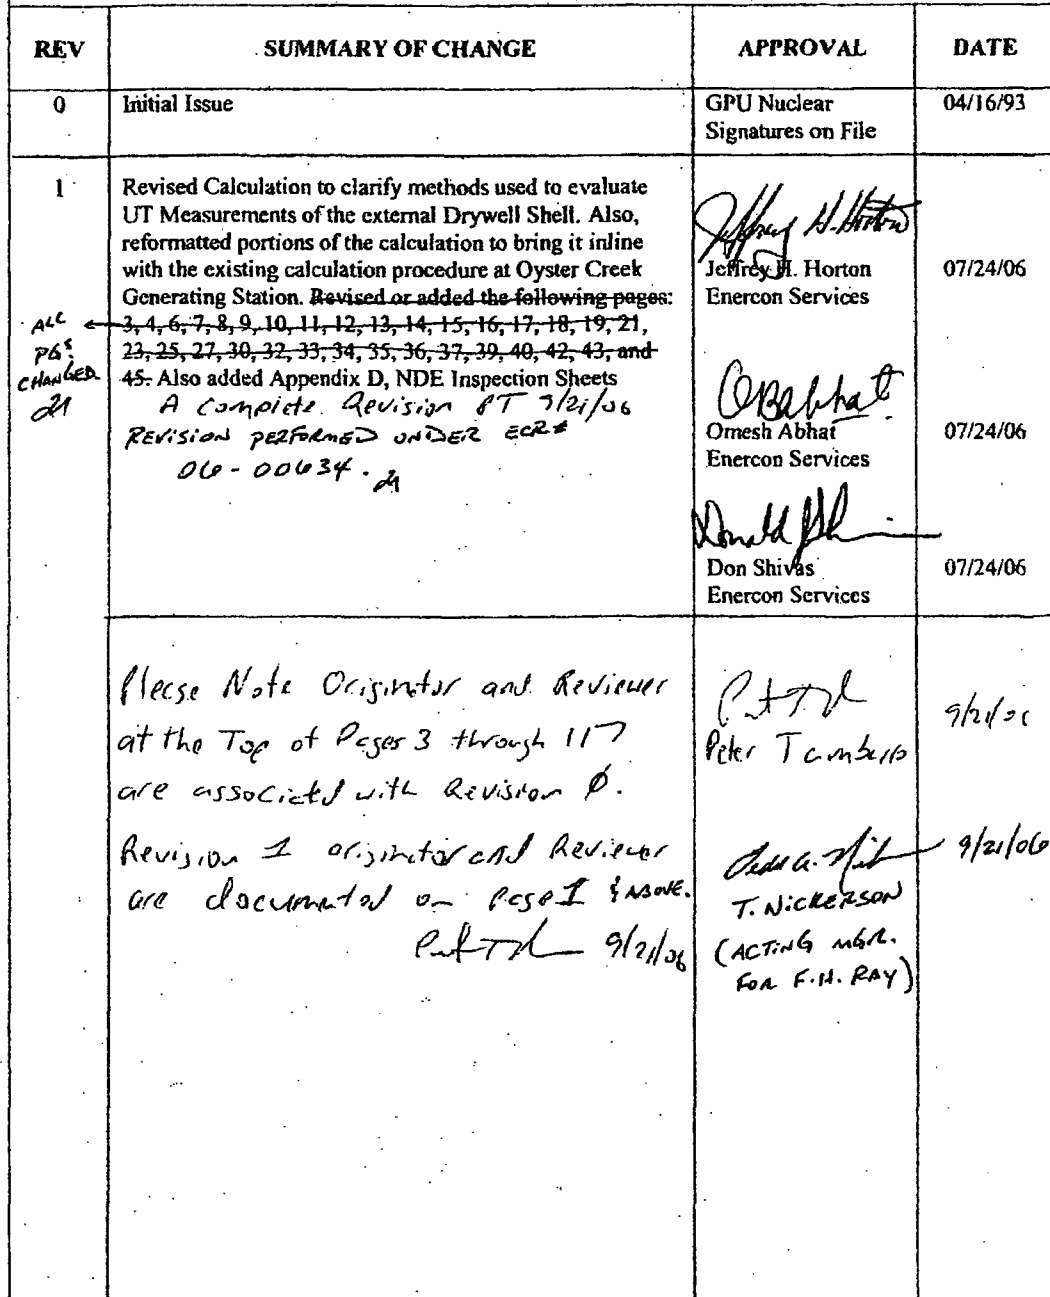 REV SUMMARY OF CHANGE APPROVAL DATE
0 Initial Issue GPU Nuclear 04/16/93
Signatures on File
1 Revised Calculation to clarify methods used to evaluate
UT Measurements of the external Drywell Shell. Also,
reformatted portions of the calculation to bring it inline
with the existing calculation procedure at Oyster Creek
Generating Station. Revised or added the following pages:
3, 4, 6, 7, 8, 9, 10, 11, 12, 13, 14, 15, 16, 17, 18, 19, 21,
23, 25, 27, 30, 32, 33, 34, 35, 36, 37, 39, 40, 42, 43, and
45. Also added Appendix D, NDE Inspection Sheets
ALL
PGS
CHANGED
A Complete Revision PT 9/21/06
REVISION PERFORMED UNDER ECR#
06-00634.
Jeffrey H. Horton
Jeffrey H. Horton 07/24/06
Enercon Services
OBAbhat
Omesh Abhat 07/24/06
Enercon Services
Donald
Don Shivas 07/24/06
Enercon Services
Please Note Originator and Reviewer
at the Top of Pages 3 through 117
are associated with Revision 0.
Revision 1 originator and Reviewer
are documented on page 1 & ABOVE.
9/21/06
Peter Tamburro 9/21/06
9/21/06
T. NICKERSON
(ACTING MGR.
FOR F.H. RAY)